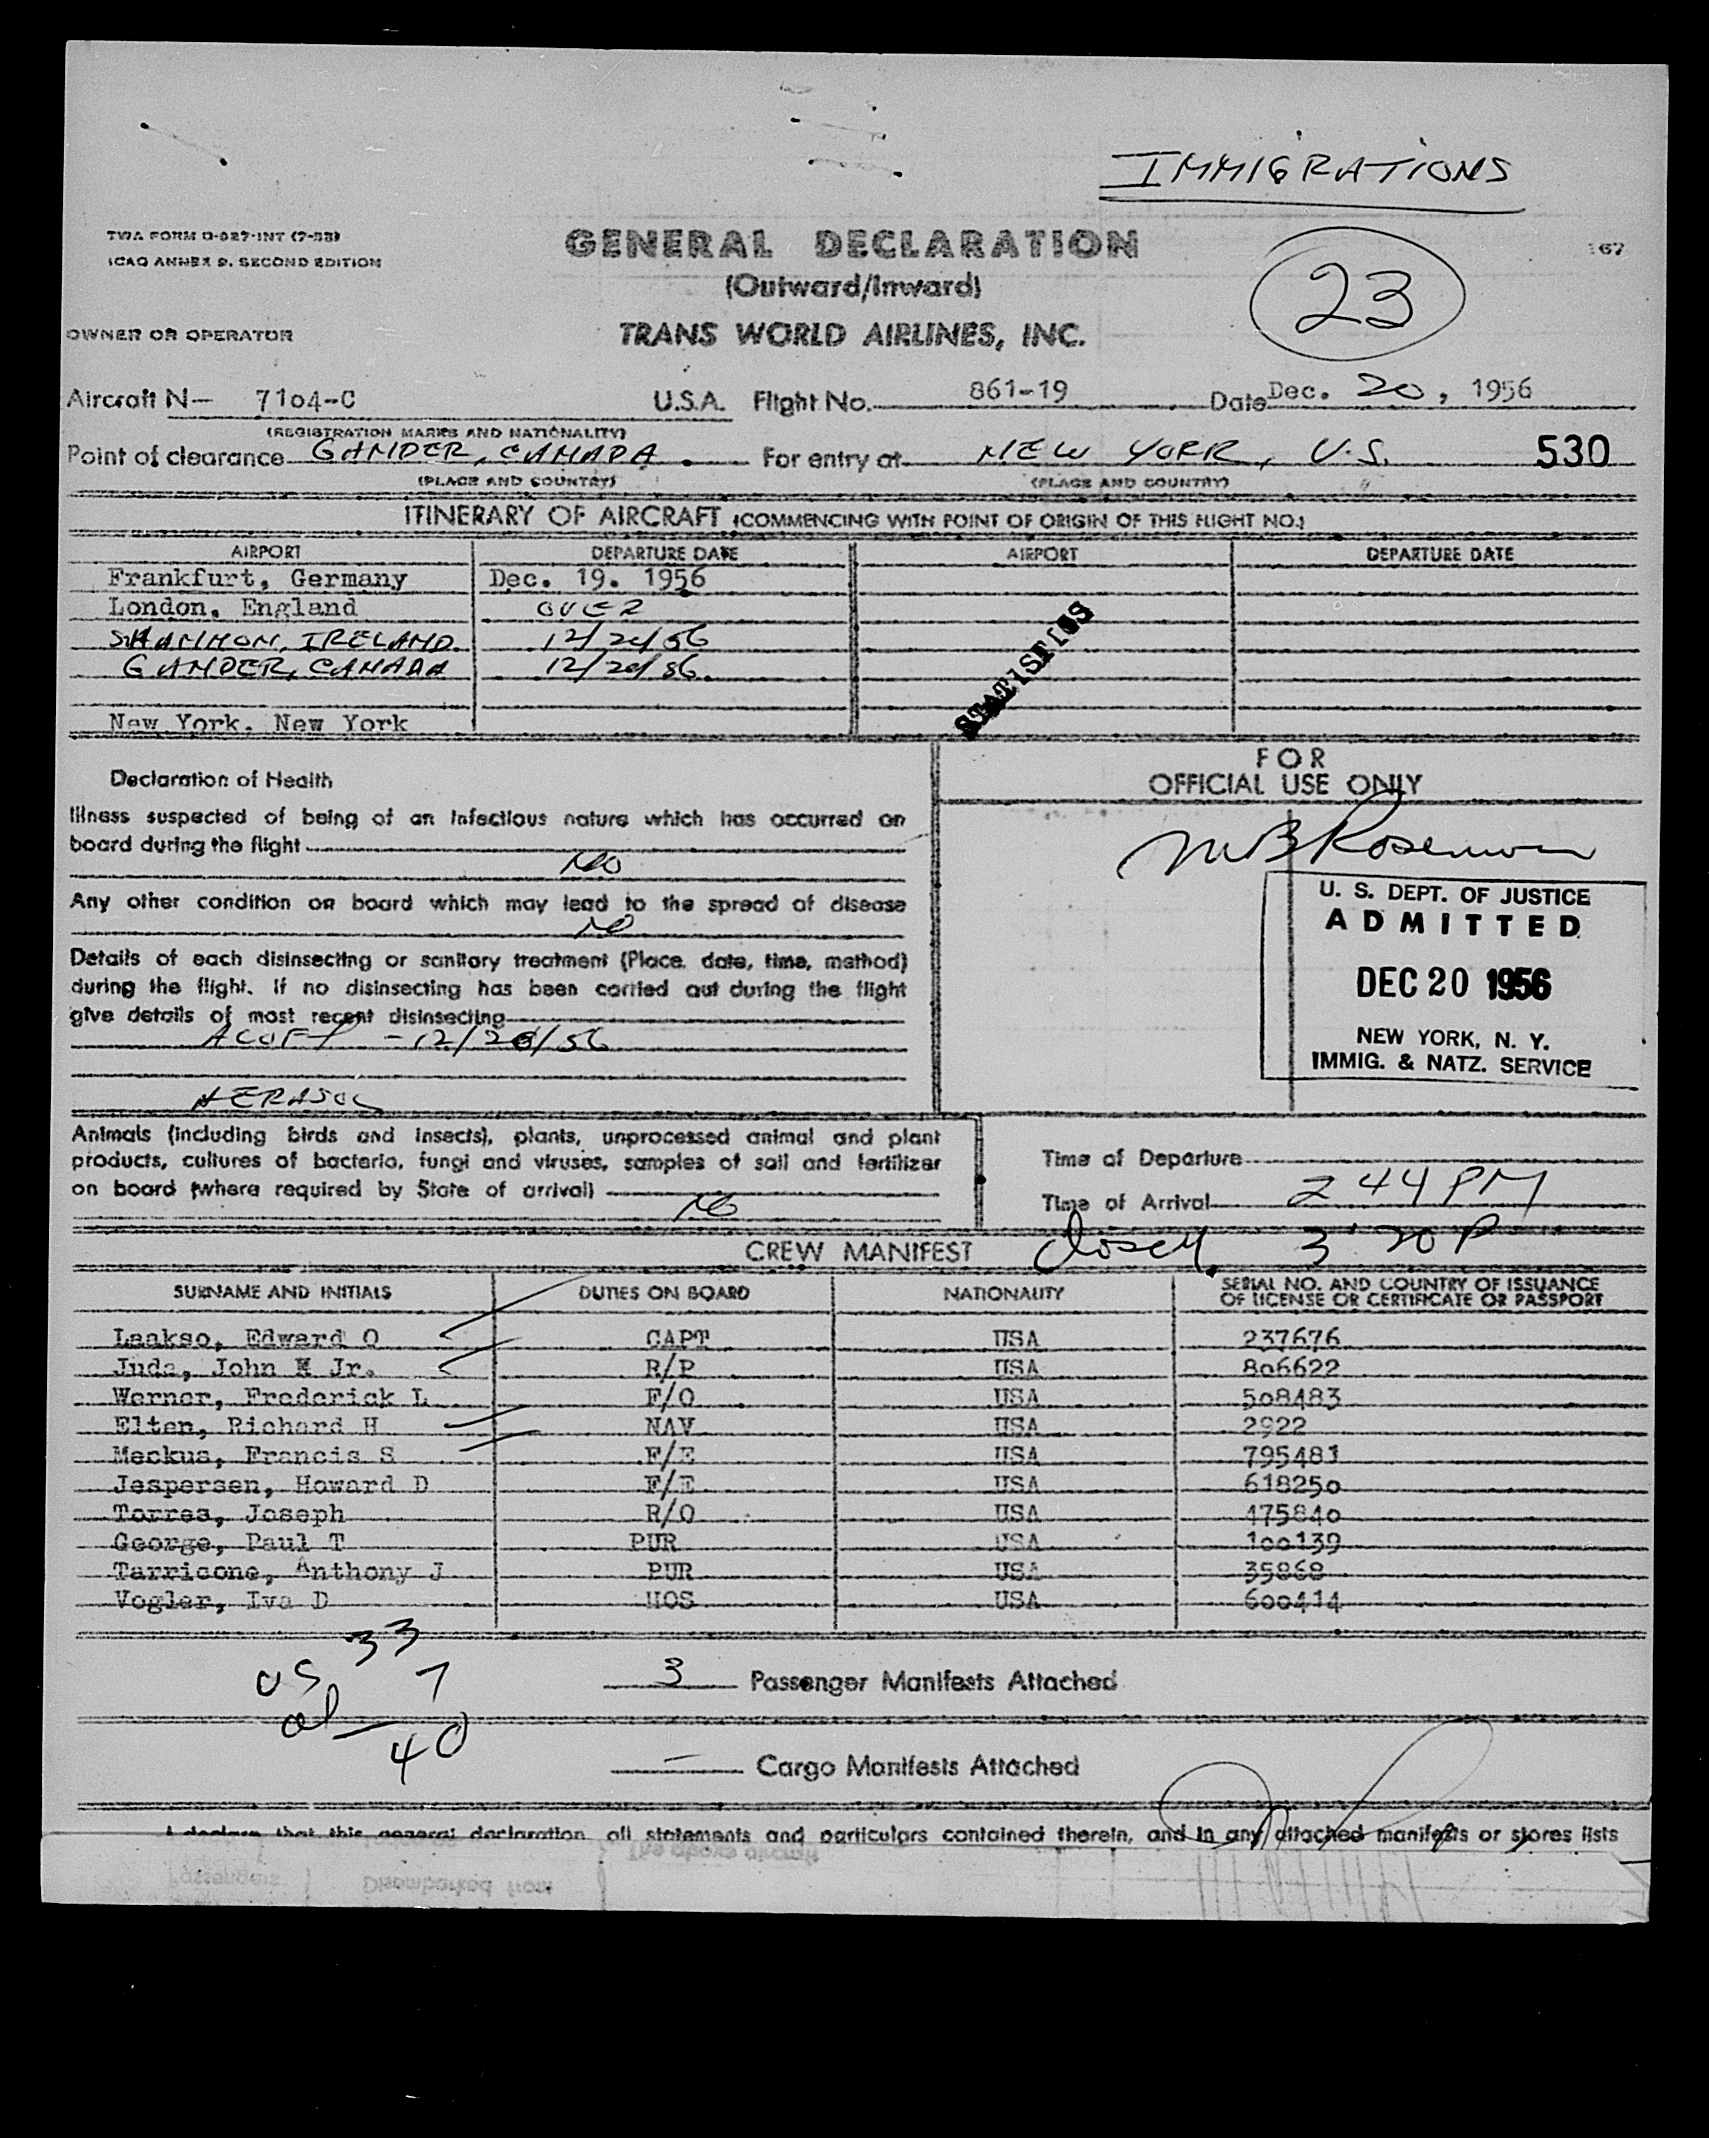 IMMIGRATIONS
TWA FORM O-027-INT (7-53)
ICAO ANNEX 9. SECOND EDITION
GENERAL DECLARATION
167
(Outward/Inward)
23
OWNER OR OPERATOR
TRANS WORLD AIRLINES, INC.
Aircraft N— 7104-C U.S.A. Flight No. 861-19 Date Dec. 20, 1956
(REGISTRATION MARKS AND NATIONALITY)
Point of clearance GANDER, CANADA. For entry at NEW YORK, U.S. 530
(PLACE AND COUNTRY) (PLACE AND COUNTRY)
ITINERARY OF AIRCRAFT (COMMENCING WITH POINT OF ORIGIN OF THIS FLIGHT NO.)
AIRPORT DEPARTURE DATE AIRPORT DEPARTURE DATE
Frankfurt, Germany Dec. 19. 1956
London, England OVER
SHANNON, IRELAND. 12/20/56
GANDER, CANADA 12/20/56
New York. New York
STATISTICS
Declaration of Health
Illness suspected of being of an infectious nature which has occurred on
board during the flight
NO
Any other condition on board which may lead to the spread of disease
NO
Details of each disinsecting or sanitary treatment (Place, date, time, method)
during the flight. If no disinsecting has been carried out during the flight
give details of most recent disinsecting
12/20/56
AERASOL
FOR
OFFICIAL USE ONLY
U. S. DEPT. OF JUSTICE
ADMITTED
DEC 20 1956
NEW YORK, N. Y.
IMMIG. & NATZ. SERVICE
Animals (including birds and insects), plants, unprocessed animal and plant
products, cultures of bacteria, fungi and viruses, samples of soil and fertilizer
on board (where required by State of arrival)
NO
Time of Departure
Time of Arrival 2 44 PM
CREW MANIFEST closed. 3 20 P
SURNAME AND INITIALS DUTIES ON BOARD NATIONALITY SERIAL NO. AND COUNTRY OF ISSUANCE
OF LICENSE OR CERTIFICATE OR PASSPORT
Laakso, Edward O CAPT USA 237676
Juda, John M Jr. R/P USA 806622
Werner, Frederick L F/O USA 508483
Elten, Richard H NAV USA 2922
Meckus, Francis S F/E USA 795481
Jespersen, Howard D F/E USA 618250
Torres, Joseph R/O USA 475840
George, Paul T PUR USA 100139
Tarricone, Anthony J PUR USA 35868
Vogler, Iva D HOS USA 600414
US 33
al 7
40
3 Passenger Manifests Attached
— Cargo Manifests Attached
I declare that this general declaration, all statements and particulars contained therein, and in any attached manifests or stores lists
The above aircraft
Passengers
Disembarked from